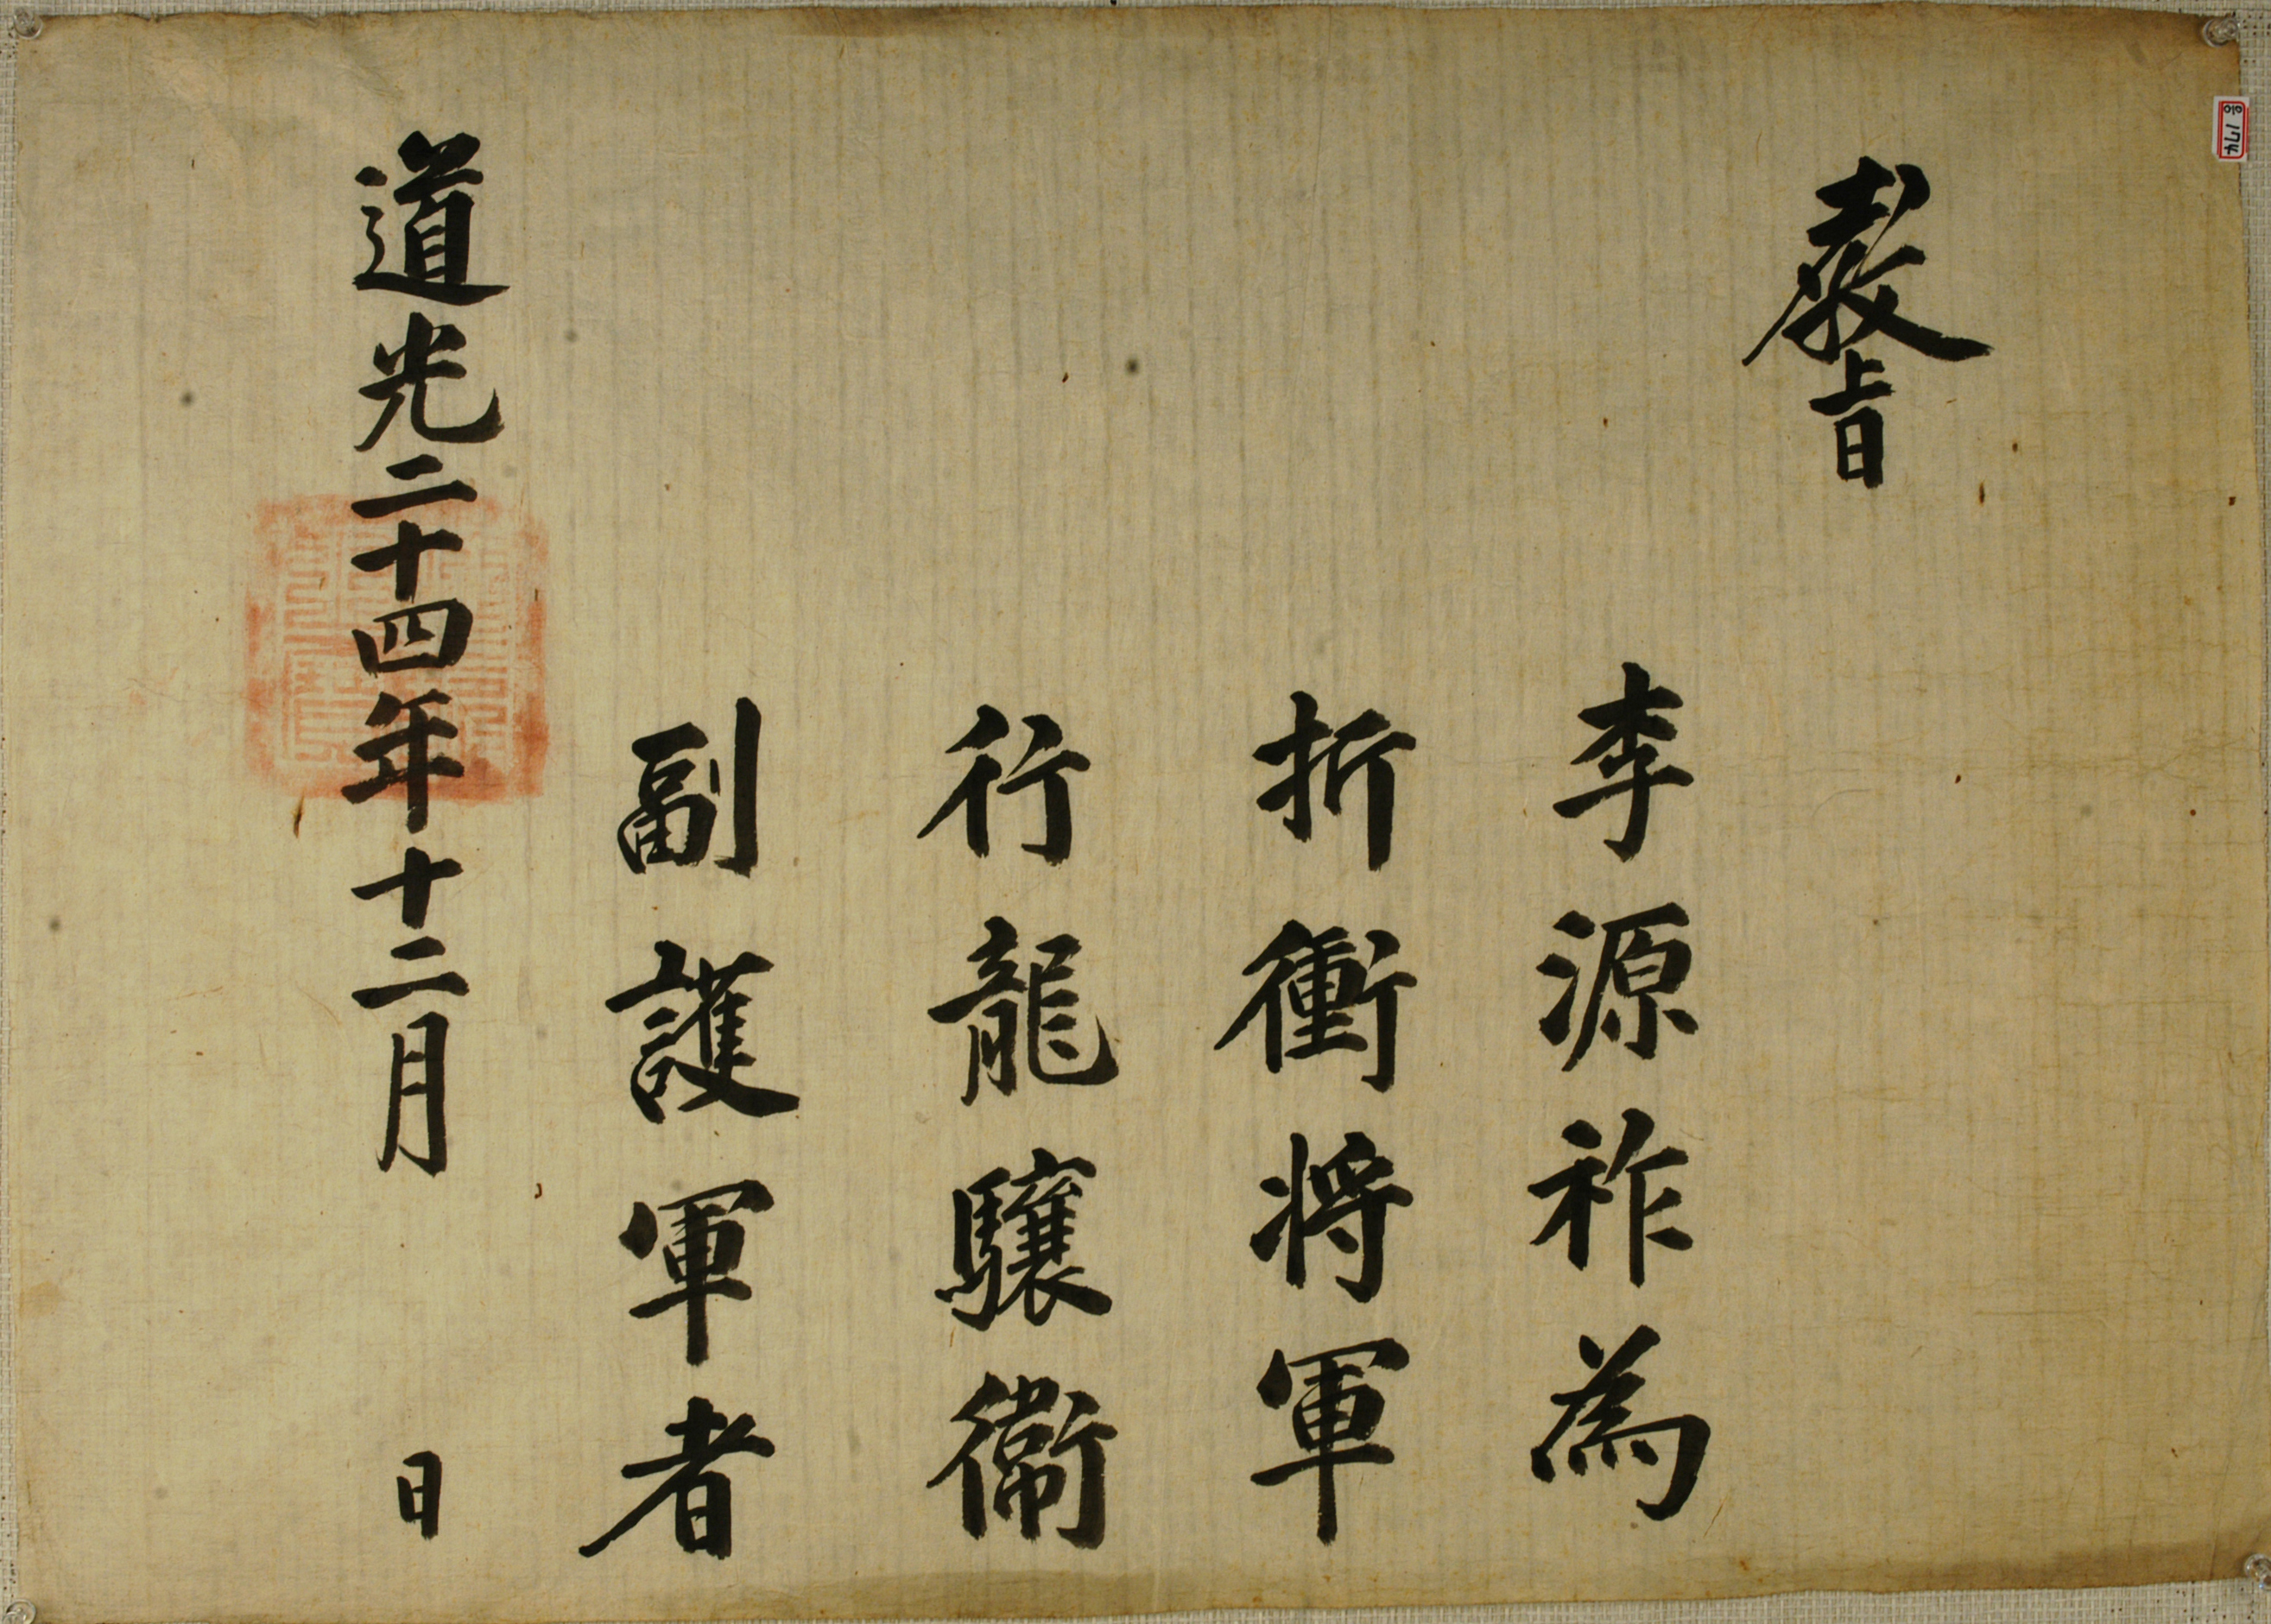 敎旨
李源祚為
折衝將軍
行龍驤衛
副護軍者
道光二十四年十二月 日
음 174